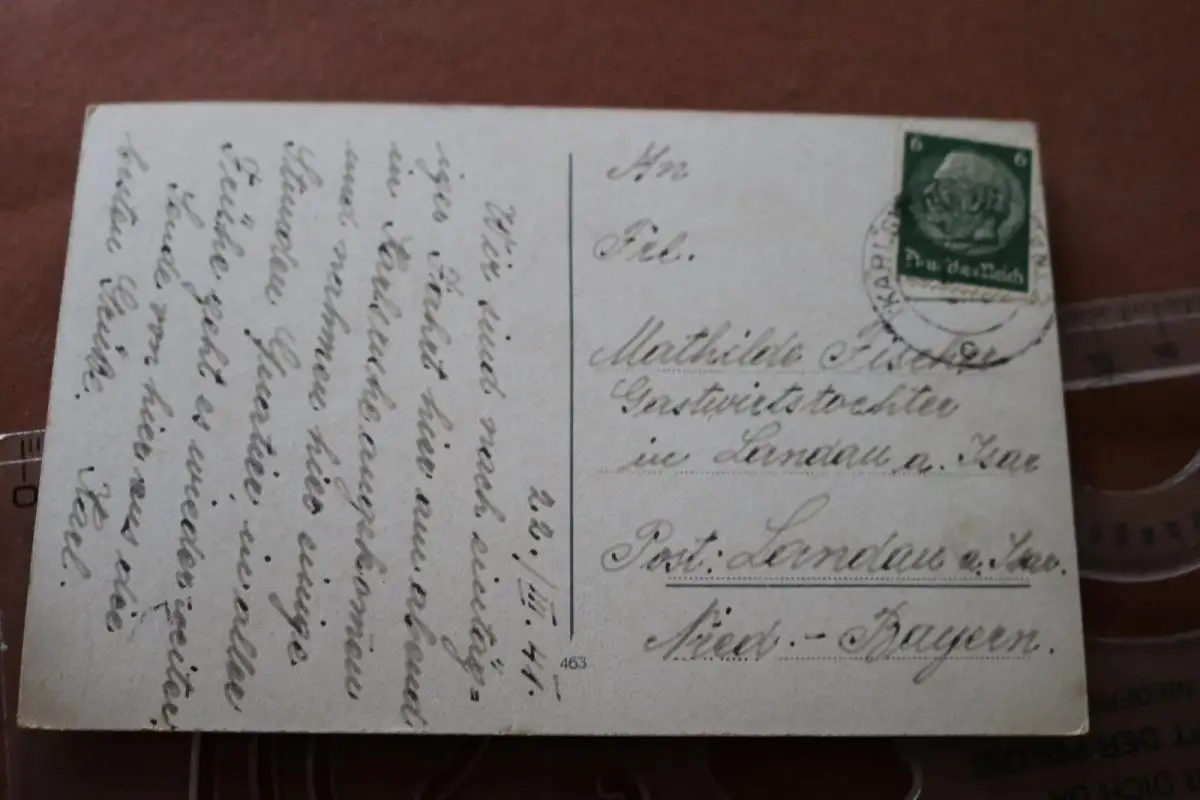 22./III. 41.
Wir sind nach eintäg=
iger Fahrt hier am abend
in Karlsruhe angekom̄en
und nahmen hier einige
Stunden Quartier in aller
Frühe geht es wieder weiter
Sende von hier aus die
besten Grüße. Karl.
463
An
Frl.
Mathilde Fischer
Gastwirtstochter
in Landau a. Isar
Post: Landau a. Isar.
Nied.-Bayern.
6 6
Deutsches Reich
KARLSR
c